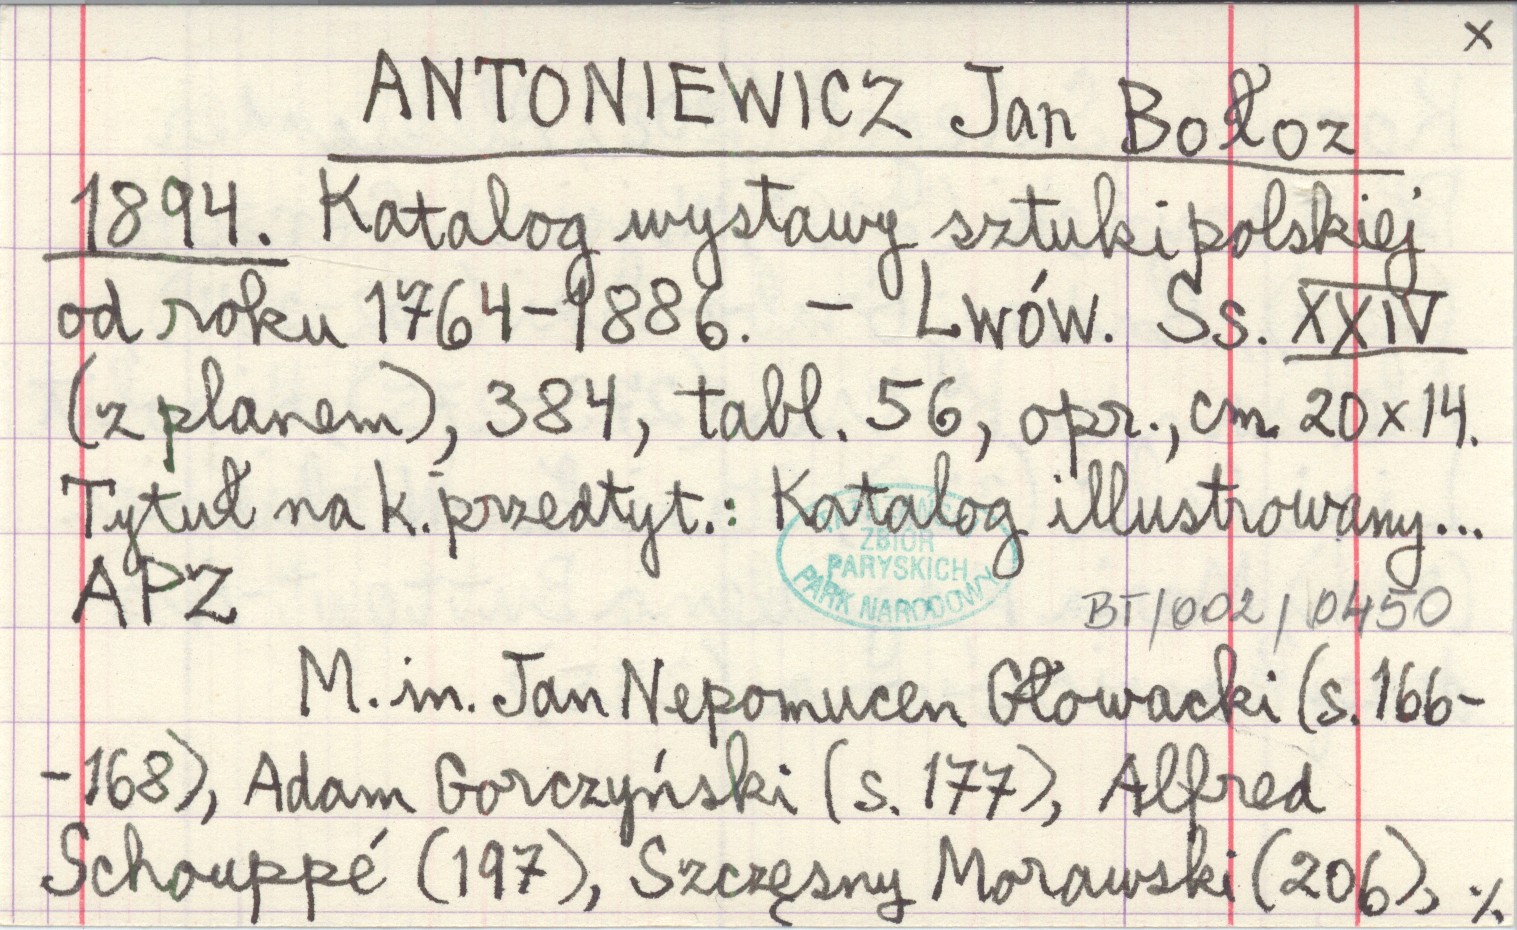 x
ANTONIEWICZ Jan Bołoz
1894. Katalog wystawy sztuki polskiej
od roku 1764-1886. - Lwów. Ss. XXIV
(z planem), 384, tabl. 56, opr., cm. 20x14.
Tytuł na k. przedtyt.: Katalog illustrowany...
ZBIÓR
PARYSKICH
PARK NARODOWY
APZ
BT/002/0450
M. in. Jan Nepomucen Głowacki (s. 166-
-168), Adam Gorczyński (s. 177), Alfred
Schouppé (197), Szczęsny Morawski (206), %